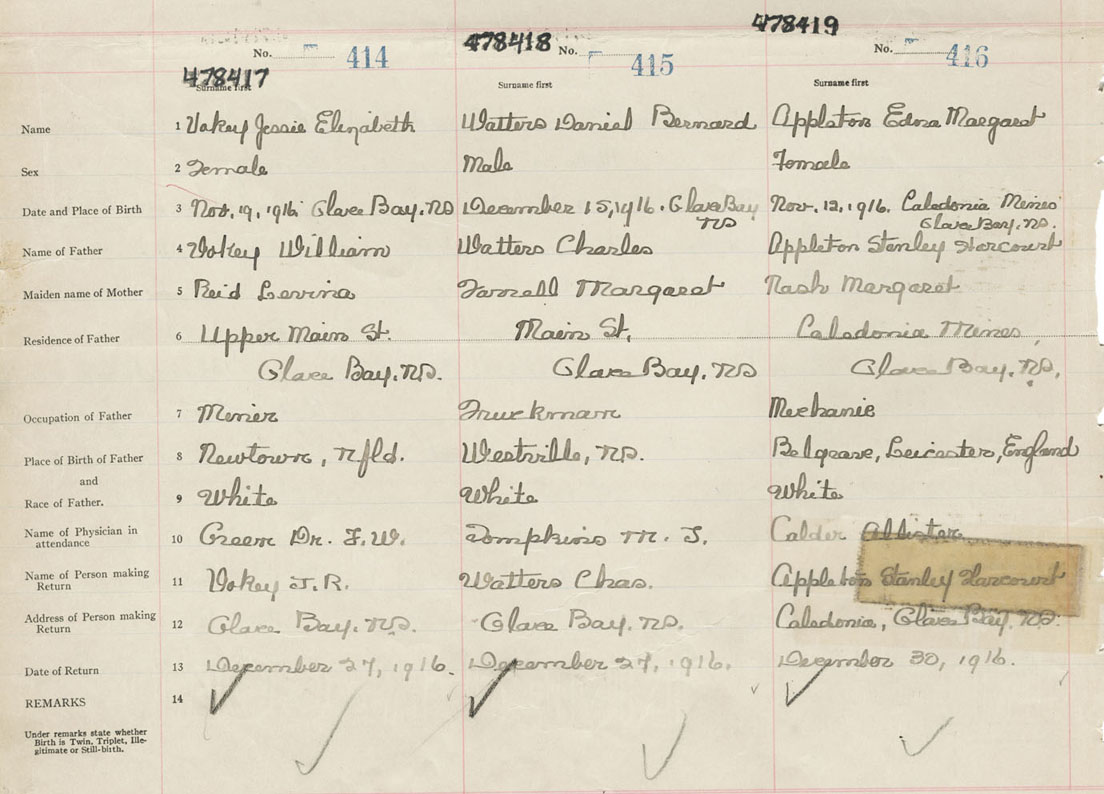 478417 No. 414 478418 No. 415 478419 No. 416
Surname first Surname first Surname first
Name 1 Vokey Jessie Elizabeth Watters Daniel Bernard Appleton Edna Margaret
Sex 2 Female Male Female
Date and Place of Birth 3 Nov. 19, 1916 Glace Bay. NS December 15, 1916. Glace Bay Nov. 12, 1916. Caledonia Mines
NS Glace Bay. NS.
Name of Father 4 Vokey William Watters Charles Appleton Stanley Harcourt
Maiden name of Mother 5 Reid Levina Farrell Margaret Nash Margaret
Residence of Father 6 Upper Main St. Main St. Caledonia Mines,
Glace Bay. NS. Glace Bay. NS Glace Bay. NS.
Occupation of Father 7 Miner Truckman Mechanic
Place of Birth of Father 8 Newtown, Nfld. Westville, NS. Belgrave, Leicester, England
and
Race of Father. 9 White White White
Name of Physician in attendance 10 Green Dr. F. W. Tompkins M. J. Calder Allister
Name of Person making Return 11 Vokey J. R. Watters Chas. Appleton Stanley Harcourt
Address of Person making Return 12 Glace Bay. NS. Glace Bay. NS. Caledonia, Glace Bay. NS.
Date of Return 13 December 27, 1916. December 27, 1916. December 30, 1916.
REMARKS 14
Under remarks state whether
Birth is Twin, Triplet, Ille-
gitimate or Still-birth.